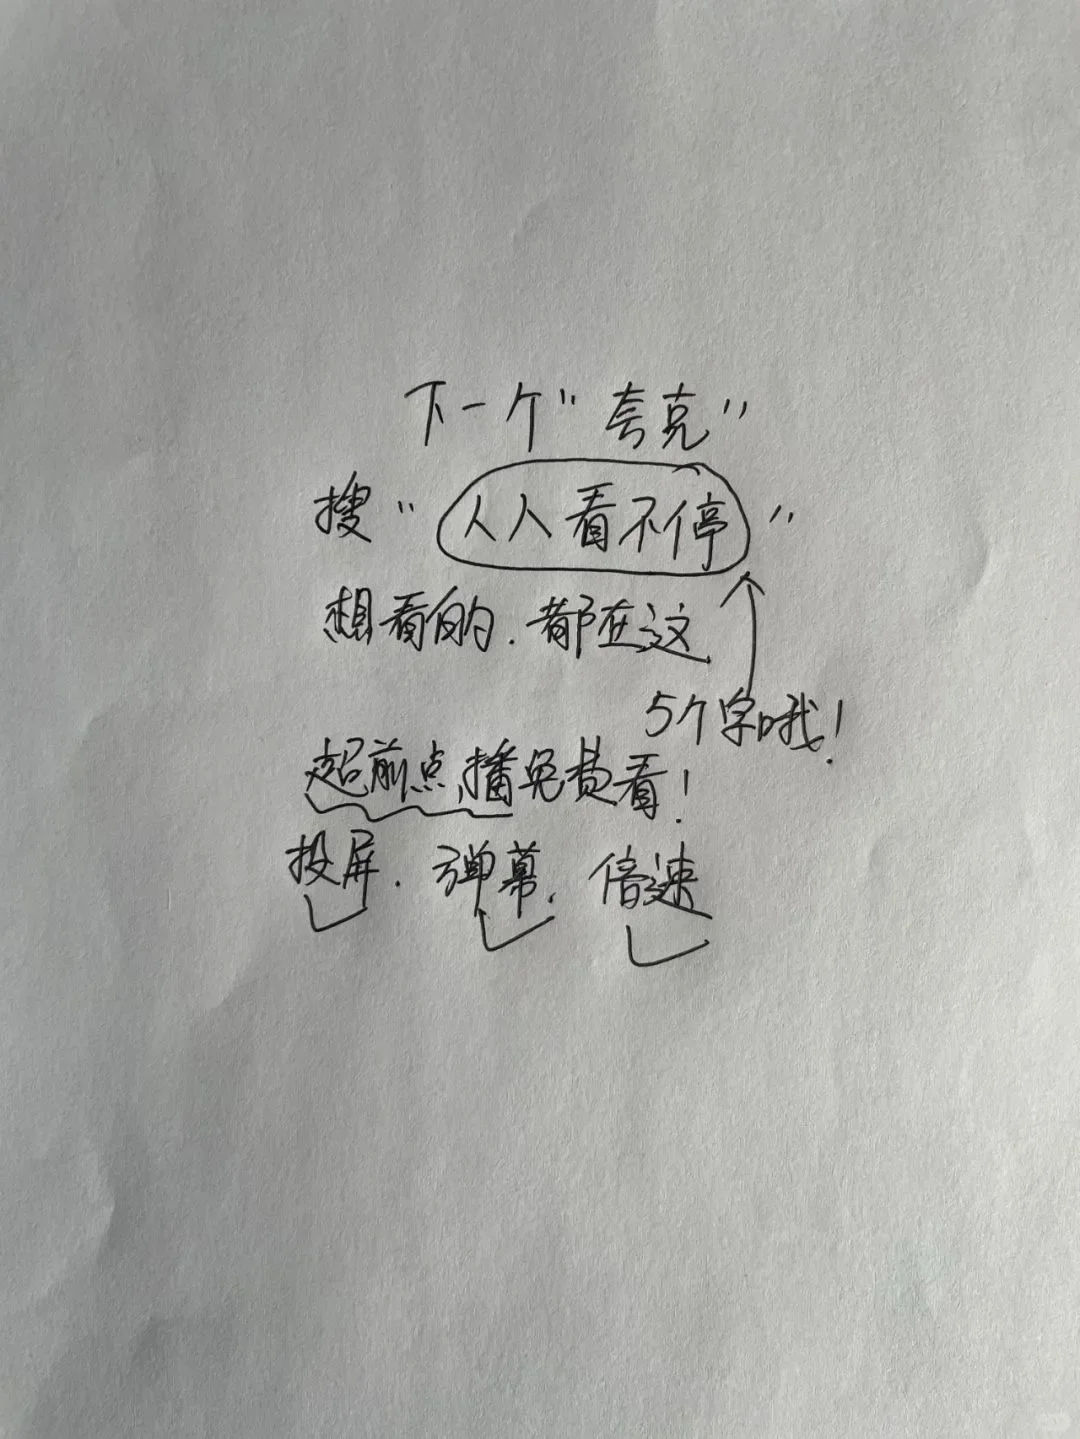 下一个"夸克"
搜"人人看不停"
想看的.都在这
5个字哦!
超前点播免费看!
投屏.弹幕.倍速